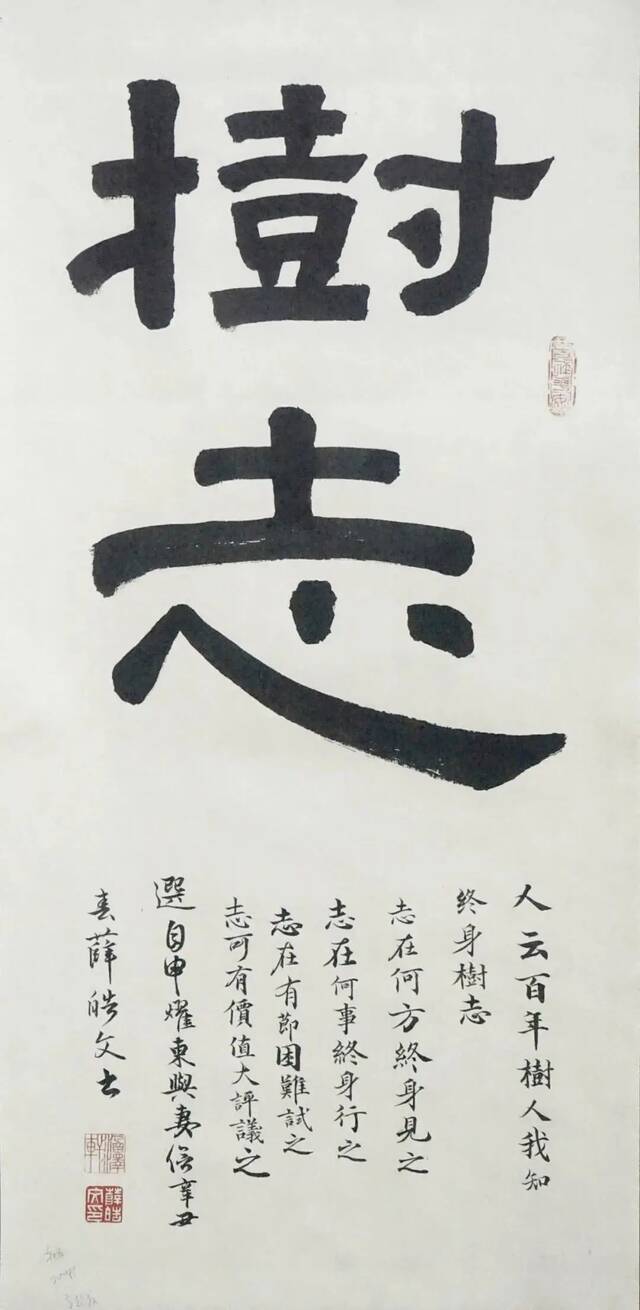 樹志
人云百年樹人我知
終身樹志
志在何方終身見之
志在何事終身行之
志在有節困難試之
志可有價值大評議之
選自申耀東與妻信辛丑
春薛皓文書
薛皓文印